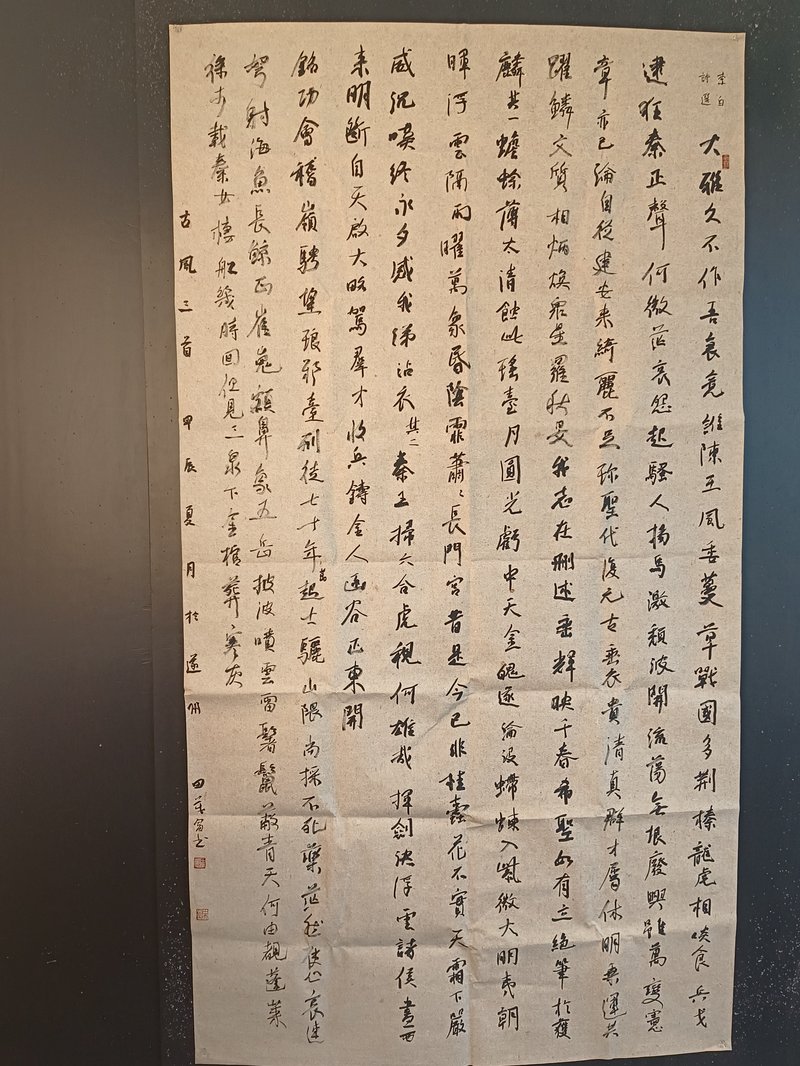 李白
詩選
大雅久不作吾衰竟誰陳王風委蔓草戰國多荆榛龍虎相啖食兵戈
逮狂秦正聲何微茫哀怨起騷人揚馬激頹波開流蕩無垠廢興雖萬變憲
章亦已淪自從建安來綺麗不足珍聖代復元古垂衣貴清真群才屬休明乘運共
躍鱗文質相炳煥衆星羅秋旻我志在刪述垂輝映千春希聖如有立絕筆於獲
麟其一蟾蜍薄太清蝕此瑤臺月圓光虧中天金魄遂淪沒螮蝀入紫微大明夷朝
暉浮雲隔兩曜萬象昏陰霏蕭〻長門宮昔是今已非桂蠹花不實天霜下嚴
威沉嘆終永夕感我涕沾衣其二秦王掃六合虎視何雄哉揮劍決浮雲諸侯盡西
來明斷自天啟大略駕羣才收兵鑄金人函谷正東開
銘功會稽嶺騁望琅邪臺刑徒七十年萬起土驪山隈尚採不死藥茫然使心哀連
弩射海魚長鯨正崔嵬額鼻象五岳披波噴雲雷鬐鬣蔽青天何由覩蓬萊
徐市載秦女樓船幾時回但見三泉下金棺葬寒灰
古風三首甲辰夏月於遂州田富書